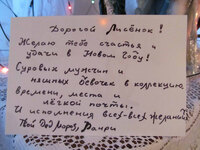 Дорогой Лисёнок!
Желаю тебе счастья и
удачи в Новом Году!
Суровых мужчин и
няшных девочек в коррекцию
времени, места и
лёгкой почты.
И исполнения всех-всех желаний!
Твой Дед Мороз,